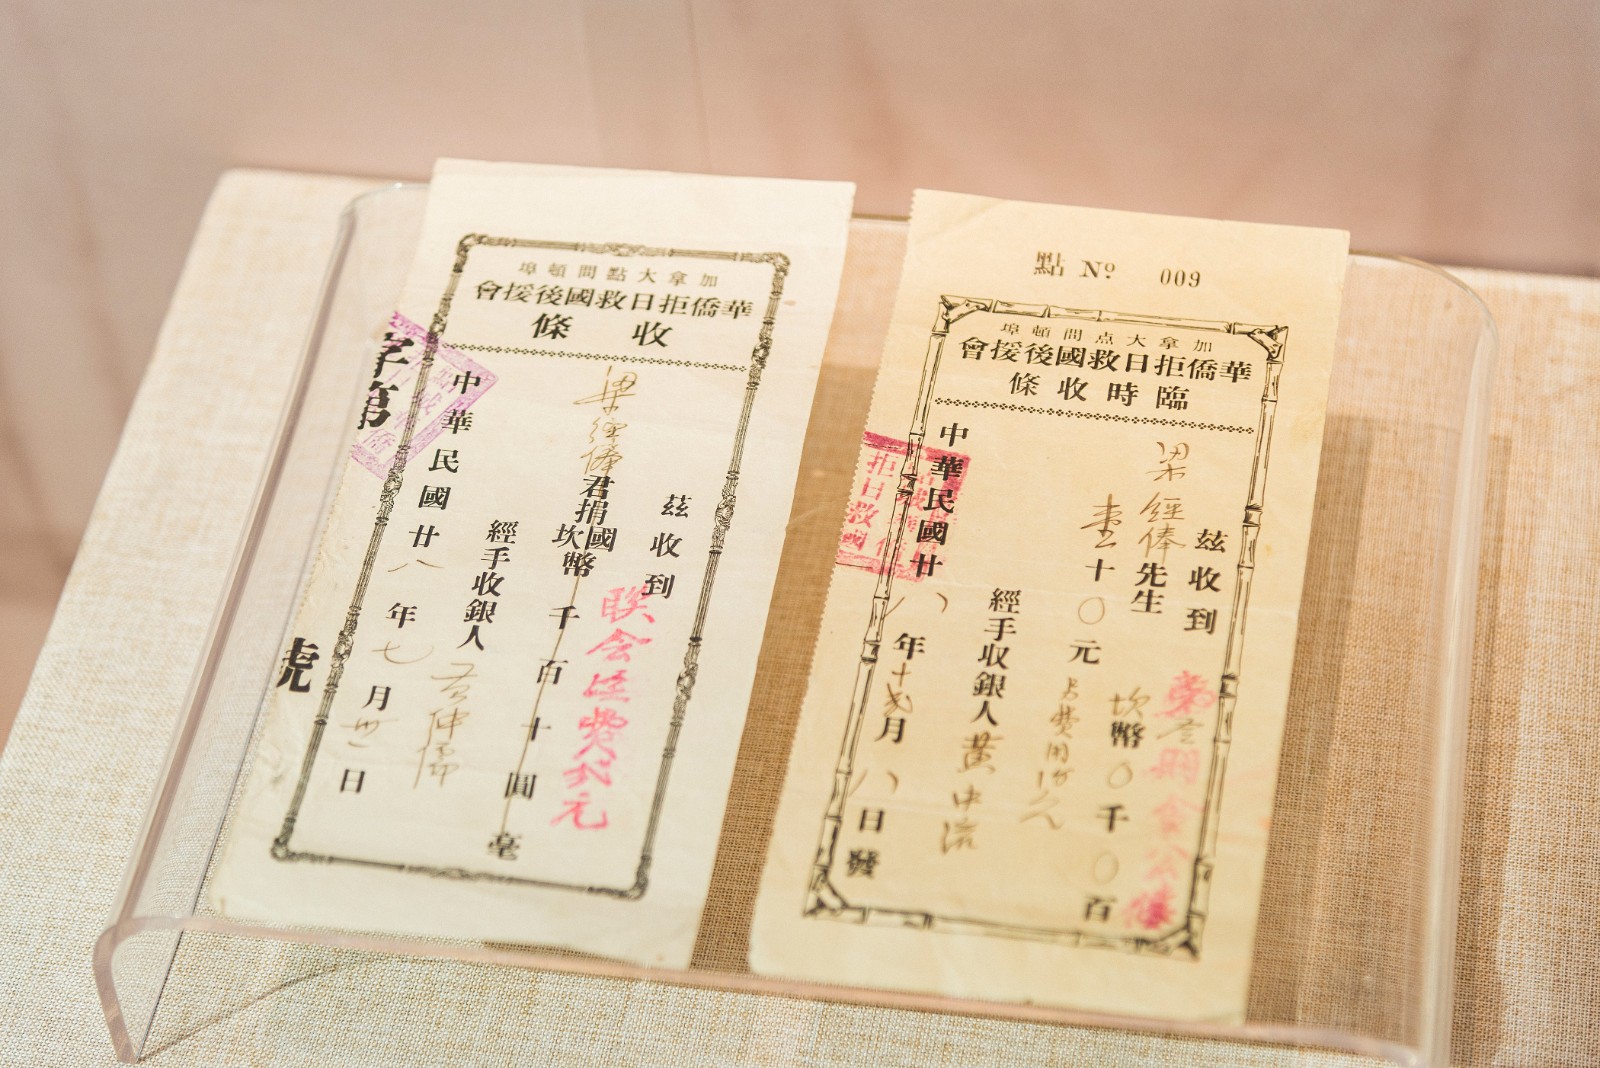 加拿大點問頓埠
華僑拒日救國後援會
收條
茲收到
梁經俸君捐國坎幣千百十圓毫
聯会經費弍元
經手收銀人仲儒
中華民國廿八年七月卅一日
字第號
點 No 009
加拿大点問頓埠
華僑拒日救國後援會
臨時收條
茲收到
梁經俸先生坎幣〇千〇百
壹十〇元
經手收銀人黃中流
中華民國廿八年十弍月八日發
拒日救國